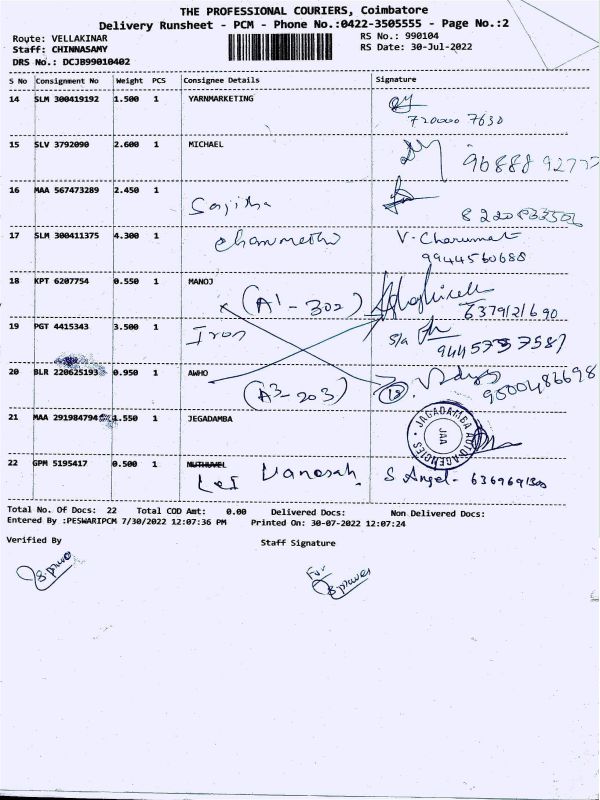 THE PROFESSIONAL COURIERS, Coimbatore
Delivery Runsheet - PCM - Phone No.:0422-3505555 - Page No.:2
Route: VELLAKINAR RS No.: 990104
Staff: CHINNASAMY RS Date: 30-Jul-2022
DRS No.: DCJB99010402
S No Consignment No Weight PCS Consignee Details Signature
14 SLM 300419192 1.500 1 YARNMARKETING
720000 7630
15 SLV 3792090 2.600 1 MICHAEL
16 MAA 567473289 2.450 1
Sajitha
17 SLM 300411375 4.300 1 V. Charumat
9944560688
18 KPT 6207754 0.550 1 MANOJ
x (A1-302)
6379121690
19 PGT 4415343 3.500 1 Iron S/a
9445737587
20 BLR 220625193 0.950 1 AWHO
(A3-203) 18. 9500486698
21 MAA 291984794 1.550 1 JEGADAMBA
JAGADAMBA AUTO AGENCIES
JAA
22 GPM 5195417 0.500 1 MUTHUVEL
S Angel-
Total No. Of Docs: 22 Total COD Amt: 0.00 Delivered Docs: Non Delivered Docs:
Entered By :PESWARIPCM 7/30/2022 12:07:36 PM Printed On: 30-07-2022 12:07:24
Verified By Staff Signature
For